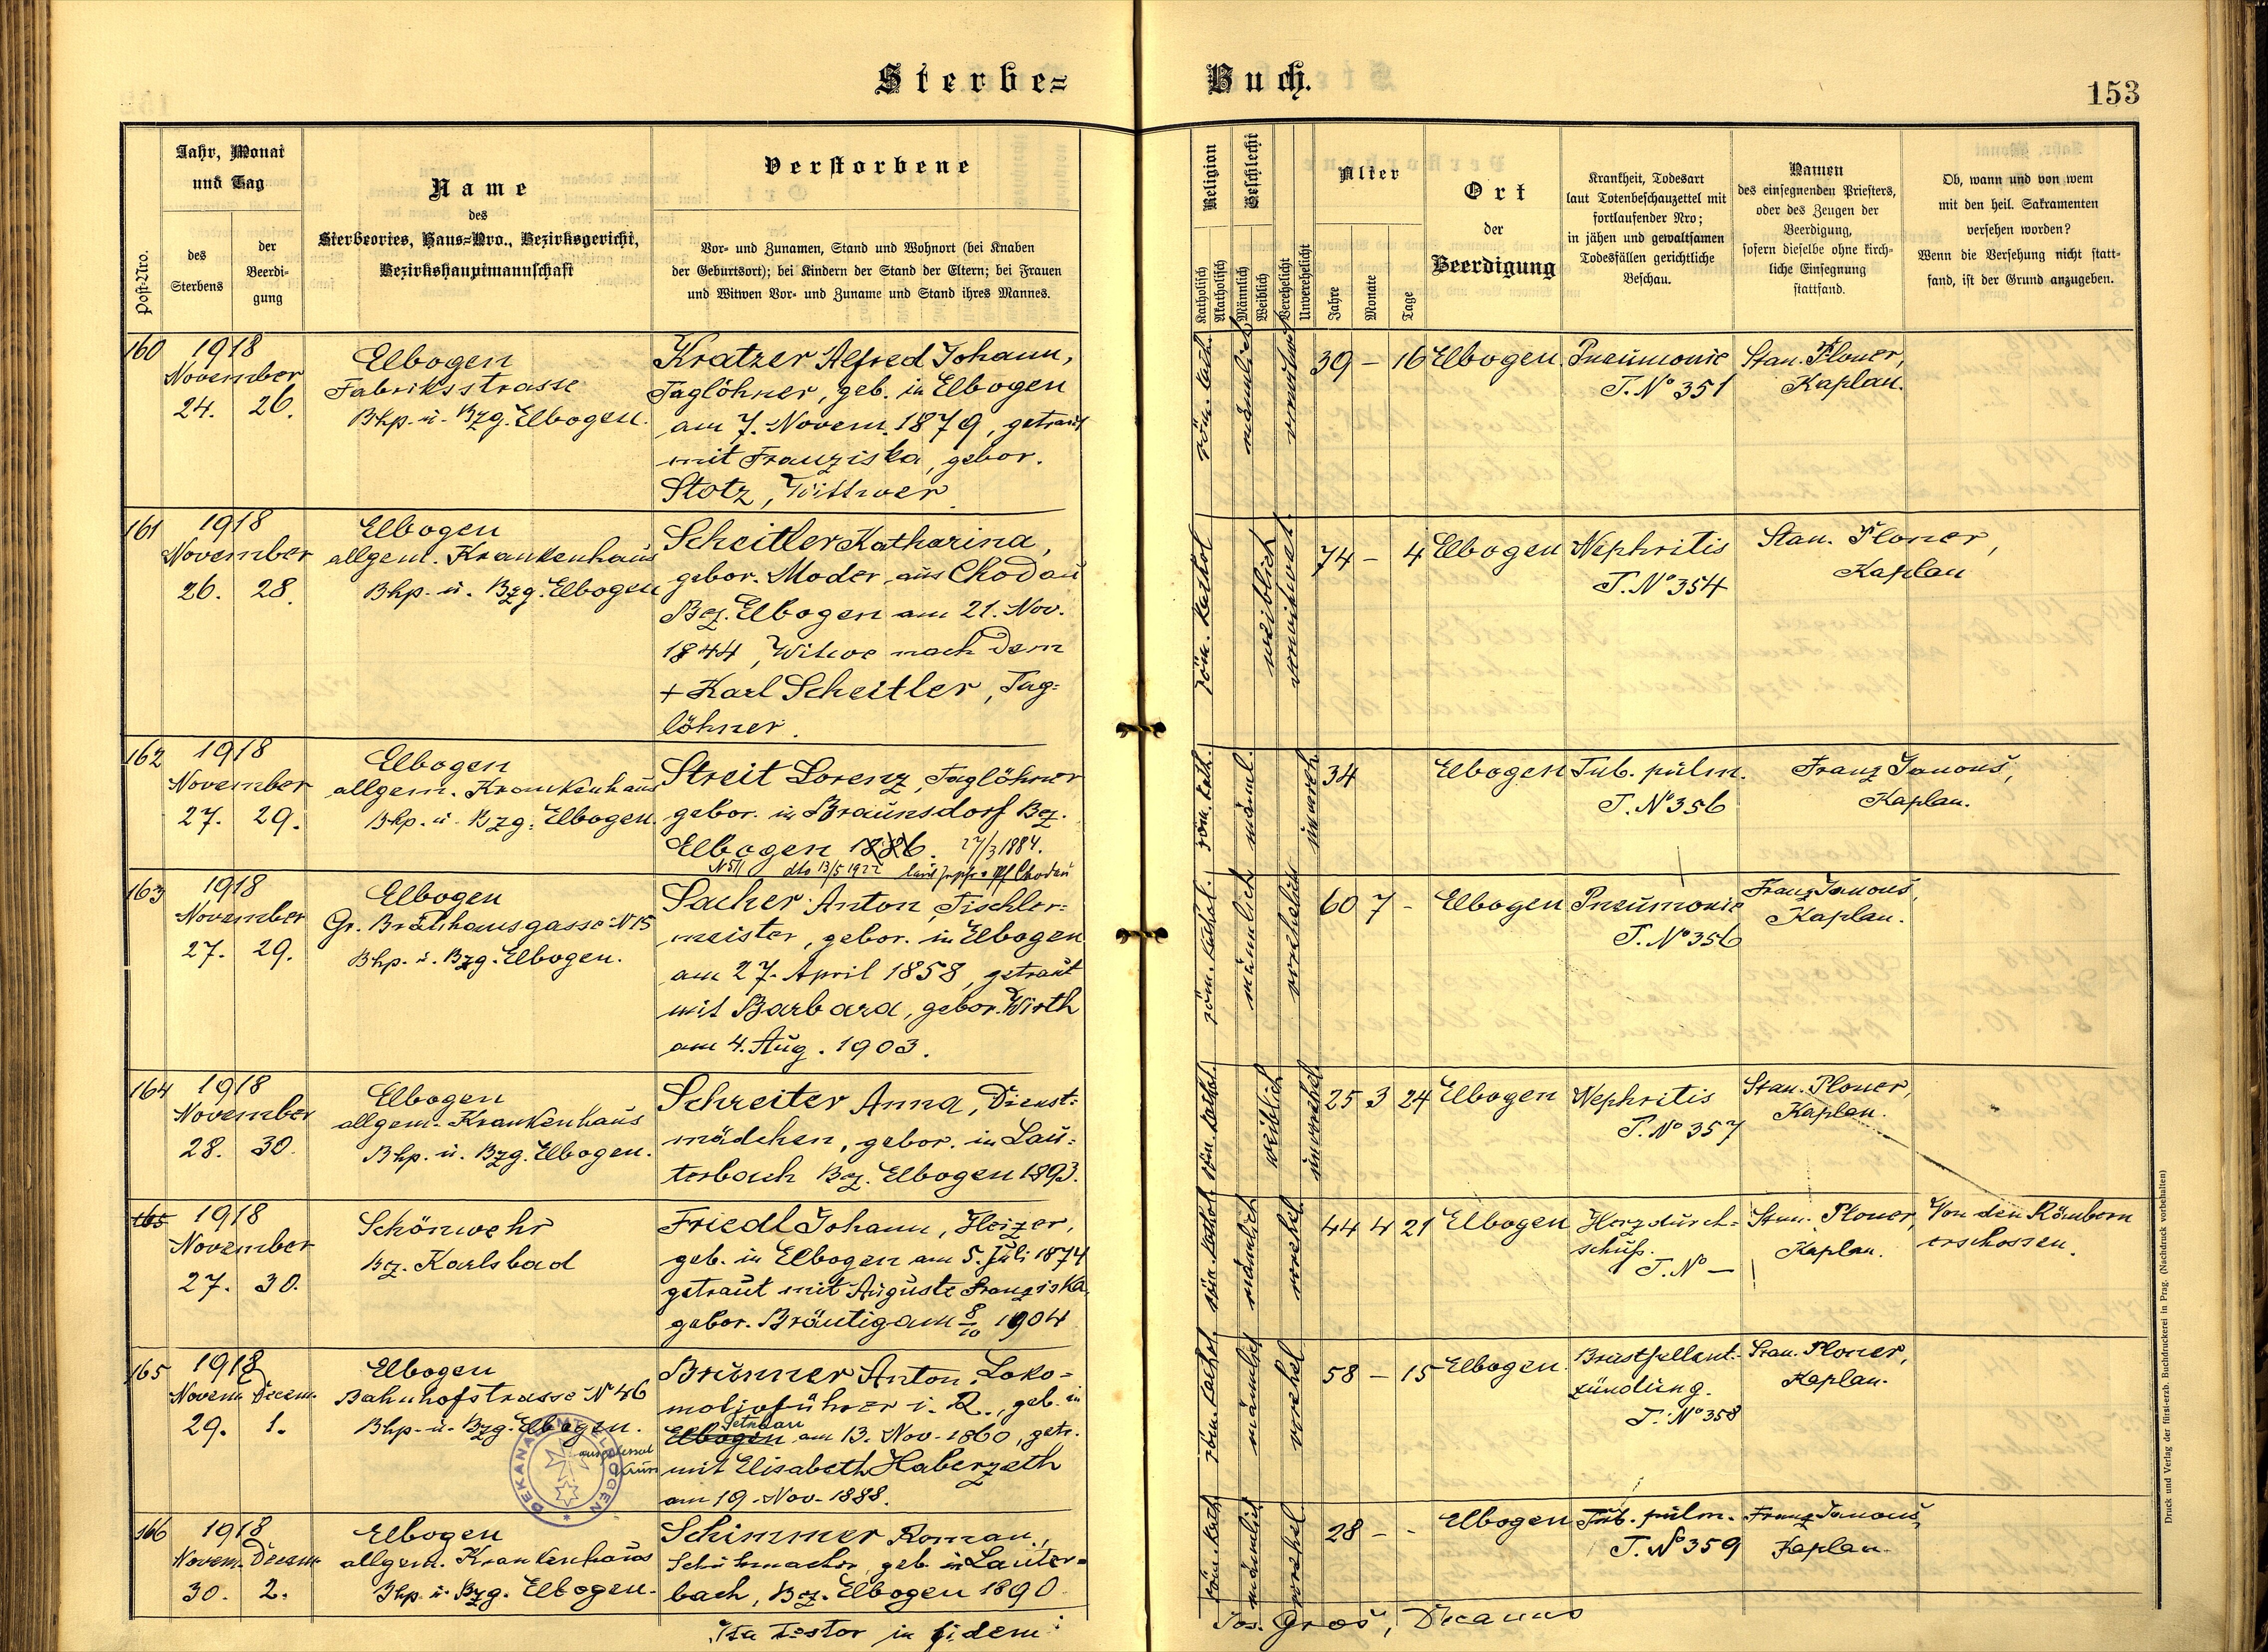 Sterbe-
Buch.
153
Post-Nro.
Jahr, Monat
und Tag
des
Sterbens
der
Beerdi-
gung
Name
des
Sterbeortes, Haus-Nro., Bezirksgericht,
Bezirkshauptmannschaft
Verstorbene
Vor- und Zunamen, Stand und Wohnort (bei Knaben
der Geburtsort); bei Kindern der Stand der Eltern; bei Frauen
und Witwen Vor- und Zuname und Stand ihres Mannes.
Religion
Katholisch
Akatholisch
Geschlecht
Männlich
Weiblich
Verehelicht
Unverehelicht
Alter
Jahre
Monate
Tage
Ort
der
Beerdigung
Krankheit, Todesart
laut Totenbeschauzettel mit
fortlaufender Nro;
in jähen und gewaltsamen
Todesfällen gerichtliche
Beschau.
Namen
des einsegnenden Priesters,
oder des Zeugen der
Beerdigung,
sofern dieselbe ohne kirch-
liche Einsegnung
stattfand.
Ob, wann und von wem
mit den heil. Sakramenten
versehen worden?
Wenn die Versehung nicht statt-
fand, ist der Grund anzugeben.
160
1918
November
24. 26.
Elbogen
Fabriksstrasse
Bhp. u. Bzg. Elbogen.
Kratzer Alfred Johann,
Taglöhner, geb. in Elbogen
am 7. Novem. 1879, getraut
mit Franziska, gebor.
Stotz, Wittwer
röm. kath.
männlich
verwitwet
39 – 16
Elbogen
Pneumonie
T. No 351
Stan. Ploner,
Kaplan.
161
1918
November
26. 28.
Elbogen
allgem. Krankenhaus
Bhp. u. Bzg. Elbogen
Scheitler Katharina,
gebor. Moder, aus Chodau
Bez. Elbogen am 21. Nov.
1844, Witwe nach dem
+ Karl Scheitler, Tag=
löhner.
röm. kathol
weiblich
verwitwet.
74 – 4
Elbogen
Nephritis
T. No 354
Stan. Ploner,
Kaplan
162
1918
November
27. 29.
Elbogen
allgem. Krankenhaus
Bhp. u. Bzg. Elbogen.
Streit Lorenz, Taglöhner
gebor. in Braunsdorf Bez.
Elbogen 1886. 27/3 1884.
N 511 dto 13/5 1922 laut Pf Chodau
röm. kath.
männl.
unvereh.
34
Elbogen
Tub. pulm.
T. No 356
Franz Janouš,
Kaplan.
163
1918
November
27. 29.
Elbogen
Gr. Bräuhausgasse N 15
Bhp. u. Bzg. Elbogen.
Sacher Anton, Tischler=
meister, gebor. in Elbogen
am 27. April 1858, getraut
mit Barbara, gebor. Wirth
am 4. Aug. 1903.
röm. kathol.
männlich
verehelich
60 7 -
Elbogen
Pneumonie
T. No 356
Franz Janouš,
Kaplan.
164
1918
November
28. 30.
Elbogen
allgem. Krankenhaus
Bhp. u. Bzg. Elbogen.
Schreiter Anna, Dienst=
mädchen, gebor. in Lau=
terbach Bez. Elbogen 1893.
röm. kathol.
weiblich
unverehel.
25 3 24
Elbogen
Nephritis
T. No 357
Stan. Ploner,
Kaplan.
165
1918
November
27. 30.
Schönwehr
Bez. Karlsbad
Friedl Johann, Heizer,
geb. in Elbogen am 5. Juli 1874
getraut mit Auguste Franziska,
gebor. Bräutigam 8/10 1904
röm. kathol.
männlich
verehel.
44 4 21
Elbogen
Herzdurch=
schuß.
T. No —
Stan. Ploner,
Kaplan.
Von den Räubern
erschossen.
165
1918
Novem. Decem.
29. 1.
Elbogen
Bahnhofstrasse No 46
Bhp. u. Bzg. Elbogen.
DEKANALAMT ELBOGEN
Brunner Anton, Loko=
motivführer i. R., geb. in
Elbogen am 13. Nov. 1860, getr.
mit Elisabeth Haberzeth
am 19. Nov. 1888.
röm. kathol.
männlich
verehel
58 – 15
Elbogen.
Brustfellent-
zündung.
T. No 358
Stan. Ploner,
Kaplan.
166
1918
Novem. Decem
30. 2.
Elbogen
allgem. Krankenhaus
Bhp. u. Bzg. Elbogen.
Schimmer Roman,
Schuhmacher, geb. in Lauter=
bach, Bez. Elbogen 1890
röm. kath
männlich
verehel
28 – -
Elbogen
Tub. pulm.
T. No 359
Franz Janouš,
Kaplan.
Ita testor in fidem:
Jos. Groš, Decanus
Druck und Verlag der fürst-erzb. Buchdruckerei in Prag. (Nachdruck vorbehalten)